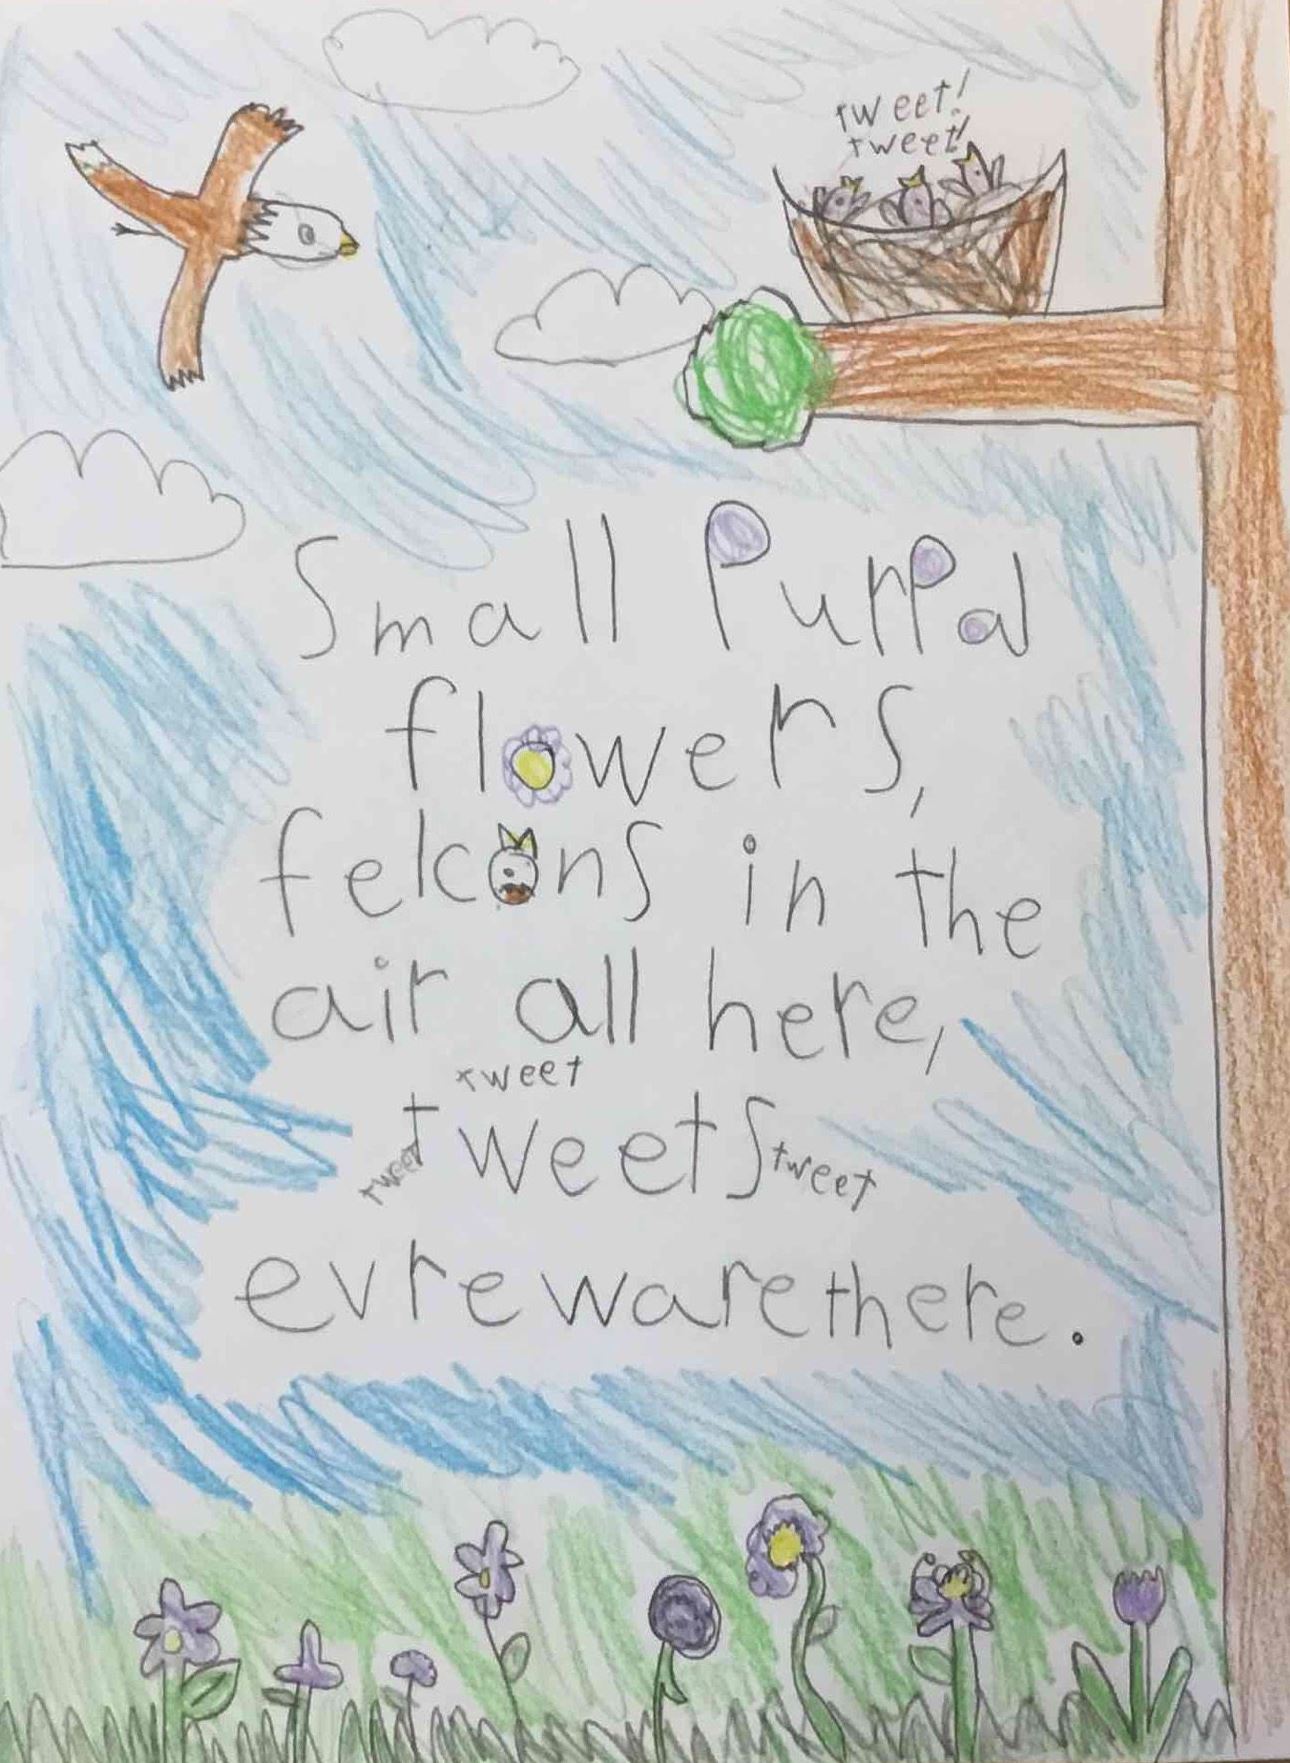 tweet!
tweet!
Small Purpal
flowers,
felcons in the
air all here,
tweet
tweet tweets tweet
evrewarethere.